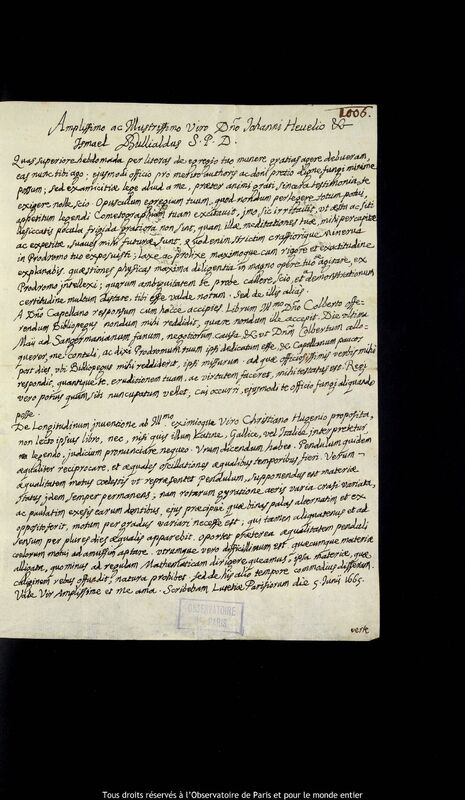 1006.
Amplissimo ac Illustrissimo Viro Dño Johanni Hevelio &c
Ismael Bullialdus S. P. D.
Quas superiore hebdomada per literas de egregio tuo munere gratias agere debueram,
eas nunc tibi ago; ejusmodi officio pro merito authoris ac doni pretio digne fungi minime
possum; sed ex amicitiae lege aliud a me, praeter animi grati, sincera testimonia, te
exigere nolle scio. Opusculum egregium tuum, quod nondum perlegere totum potui,
appetitum legendi Cometographiam tuam excitavit, imo sic irritavit, ut aestu ac siti
siccatis pocula frigida gratiora non sint, quam illae meditationes tuae, mihi percupitae
ac expetitae, suaves mihi futurae sunt, & quod enim strictim crassiorique Minerva
in Prodromo tuo exposuisti; laxe ac prolixe, maximoque cum rigore et exactitudine
explanabis. quaestiones physicas maxima diligentia in magno opere tuo te agitare, ex
Prodromo intellexi; quarum ambiguitatem te probe callere scio, et a demonstrationum
certitudine multum distare, tibi esse valde notum. Sed de illis alias.
A Dño Capellano responsum cum hacce accipies. Librum Illmo Dño Colberto offe-
rendum Bibliopegus nondum mihi reddidit, quare nondum ille accepit. Die ultima
Maii ad Sangermanianum fanum, negotiorum causa & ut Dñum Colbertum allo-
querer, me contuli, ac dixi Prodromum tuum ipsi dedicatum esse, & Capellanum paucos
post dies, ubi Bibliopegus mihi reddiderit, ipsi missurum. ad quae officiosissimis verbis mihi
respondit, quantique te, eruditionem tuam, ac virtutem faceret, mihi testatus est. Regi
vero potius quam sibi nuncupatum vellet, cui occurri, ejusmodi te officio fungi aliquando
posse.
De Longitudinum inventione ab Illmo eximioque Viro Christiano Hugenio proposita,
non lecto ipsius libro, nec, nisi quis illum Latine, Gallice, vel Italice interpretetur,
legendo, judicium pronunciare nequeo. Unum dicendum habeo. Pendulum quidem
aequaliter reciprocare, et aequales oscillationes aequalibus temporibus fieri. Verum
aequalitatem motus coelestis ut repraesentet Pendulum, supponendus est materiae
status idem semper permanens; nam rotarum gyratione aeris varia crasi variata,
ac paulatim exesis earum dentibus, ejus praecipue quae binas palas alternatim et ex
opposito ferit, motum per gradus variari necesse est; qui tamen aliquatenus et ad
sensum per plures dies aequalis apparebit. oportet praeterea aequalitatem penduli
coelorum motui ad amussim aptare. utrumque vero difficillimum est. quaecumque materiae
alligata, quominus ad regulam Mathematicam dirigere queamus, ipsa materia, quae
caliginem rebus offundit, natura prohibet. sed de his alio tempore commodius disseram.
Vale Vir Amplissime et me ama. Scribebam Lutetiae Parisiorum die 5. Junii 1665.
OBSERVATOIRE
DE PARIS
verte
Tous droits réservés à l'Observatoire de Paris et pour le monde entier